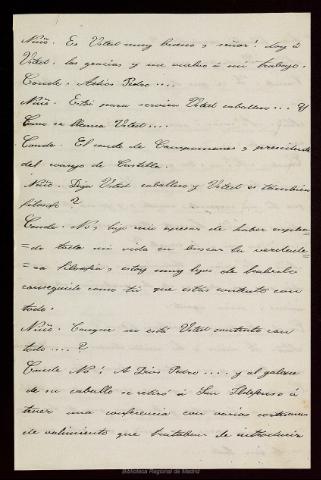 Niño. Es Usted muy bueno, señor! doy á
Usted las gracias y me vuelvo á mi trabajo.
Conde. Adios Pedro....
Niño. Está para servir á Usted caballero... Y
Como se llama Usted....
Conde. El conde de Campomanes, presidente
del consejo de Castilla.
Niño. Diga Usted caballero y Usted es tambien
filosofo?
Conde. No, hijo mio apesar de haber emplea-
=do toda mi vida en buscar la verdade-
=ra filosofía, estoy muy lejos de haberla
conseguido como tú que estas contento con
todo.
Niño. Conque no está Usted contento con
todo....?
Conde No! A Dios Pedro.... y al galope
de su caballo se retiró á San Ildefonso á
tener una conferencia con varias
de valimiento que trataban de introducir
Biblioteca Regional de Madrid